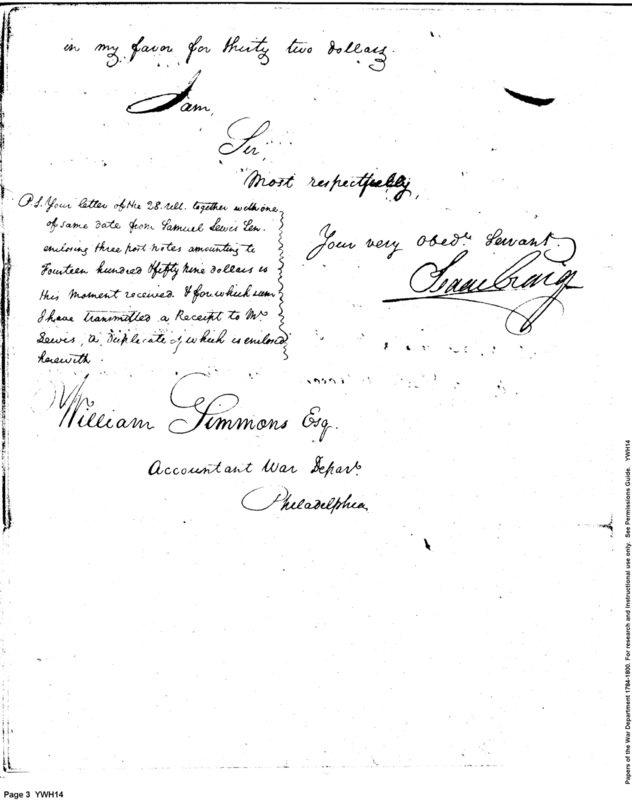 in my favor for thirty two dollars.
I am,
Sir,
Most respectfully,
Your very obedt. Servant.
Isaac Craig
P.S. Your letter of the 28. ult. together with one
of same date from Samuel Lewis Sen.
enclosing three post notes amounting to
Fourteen hundred & fifty nine dollars is
this Moment received. & for which sum
I have transmitted a Receipt to Mr.
Lewis, a Duplicate of which is enclosed
herewith.
William Simmons Esq.
Accountant War Depart.
Philadelphia
Page 3 YWH14
Papers of the War Department 1784-1800. For research and instructional use only. See Permissions Guide. YWH14